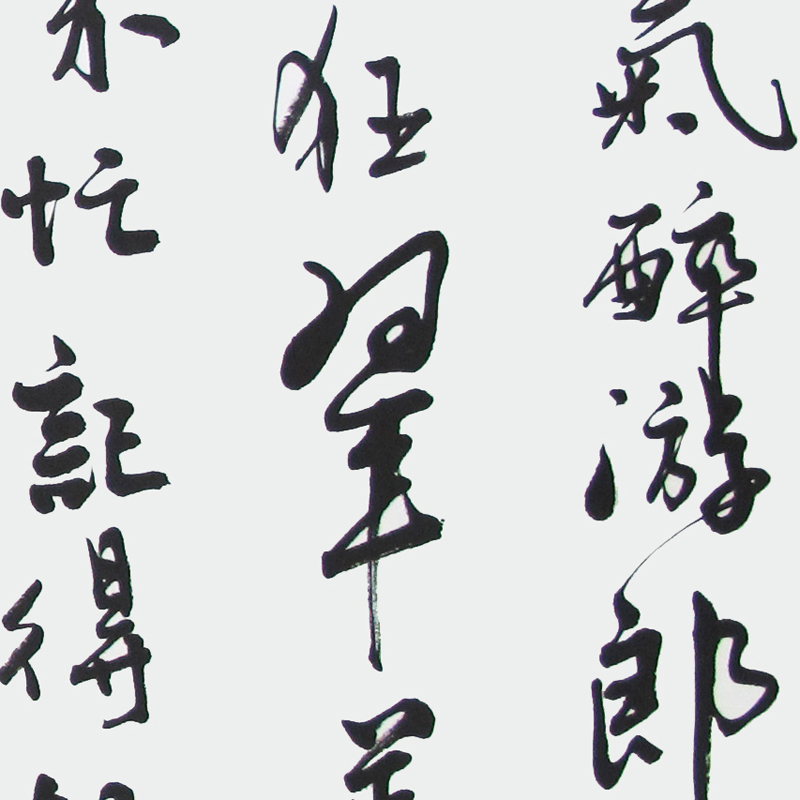 氣醉游郎
狂翠
不忙記得